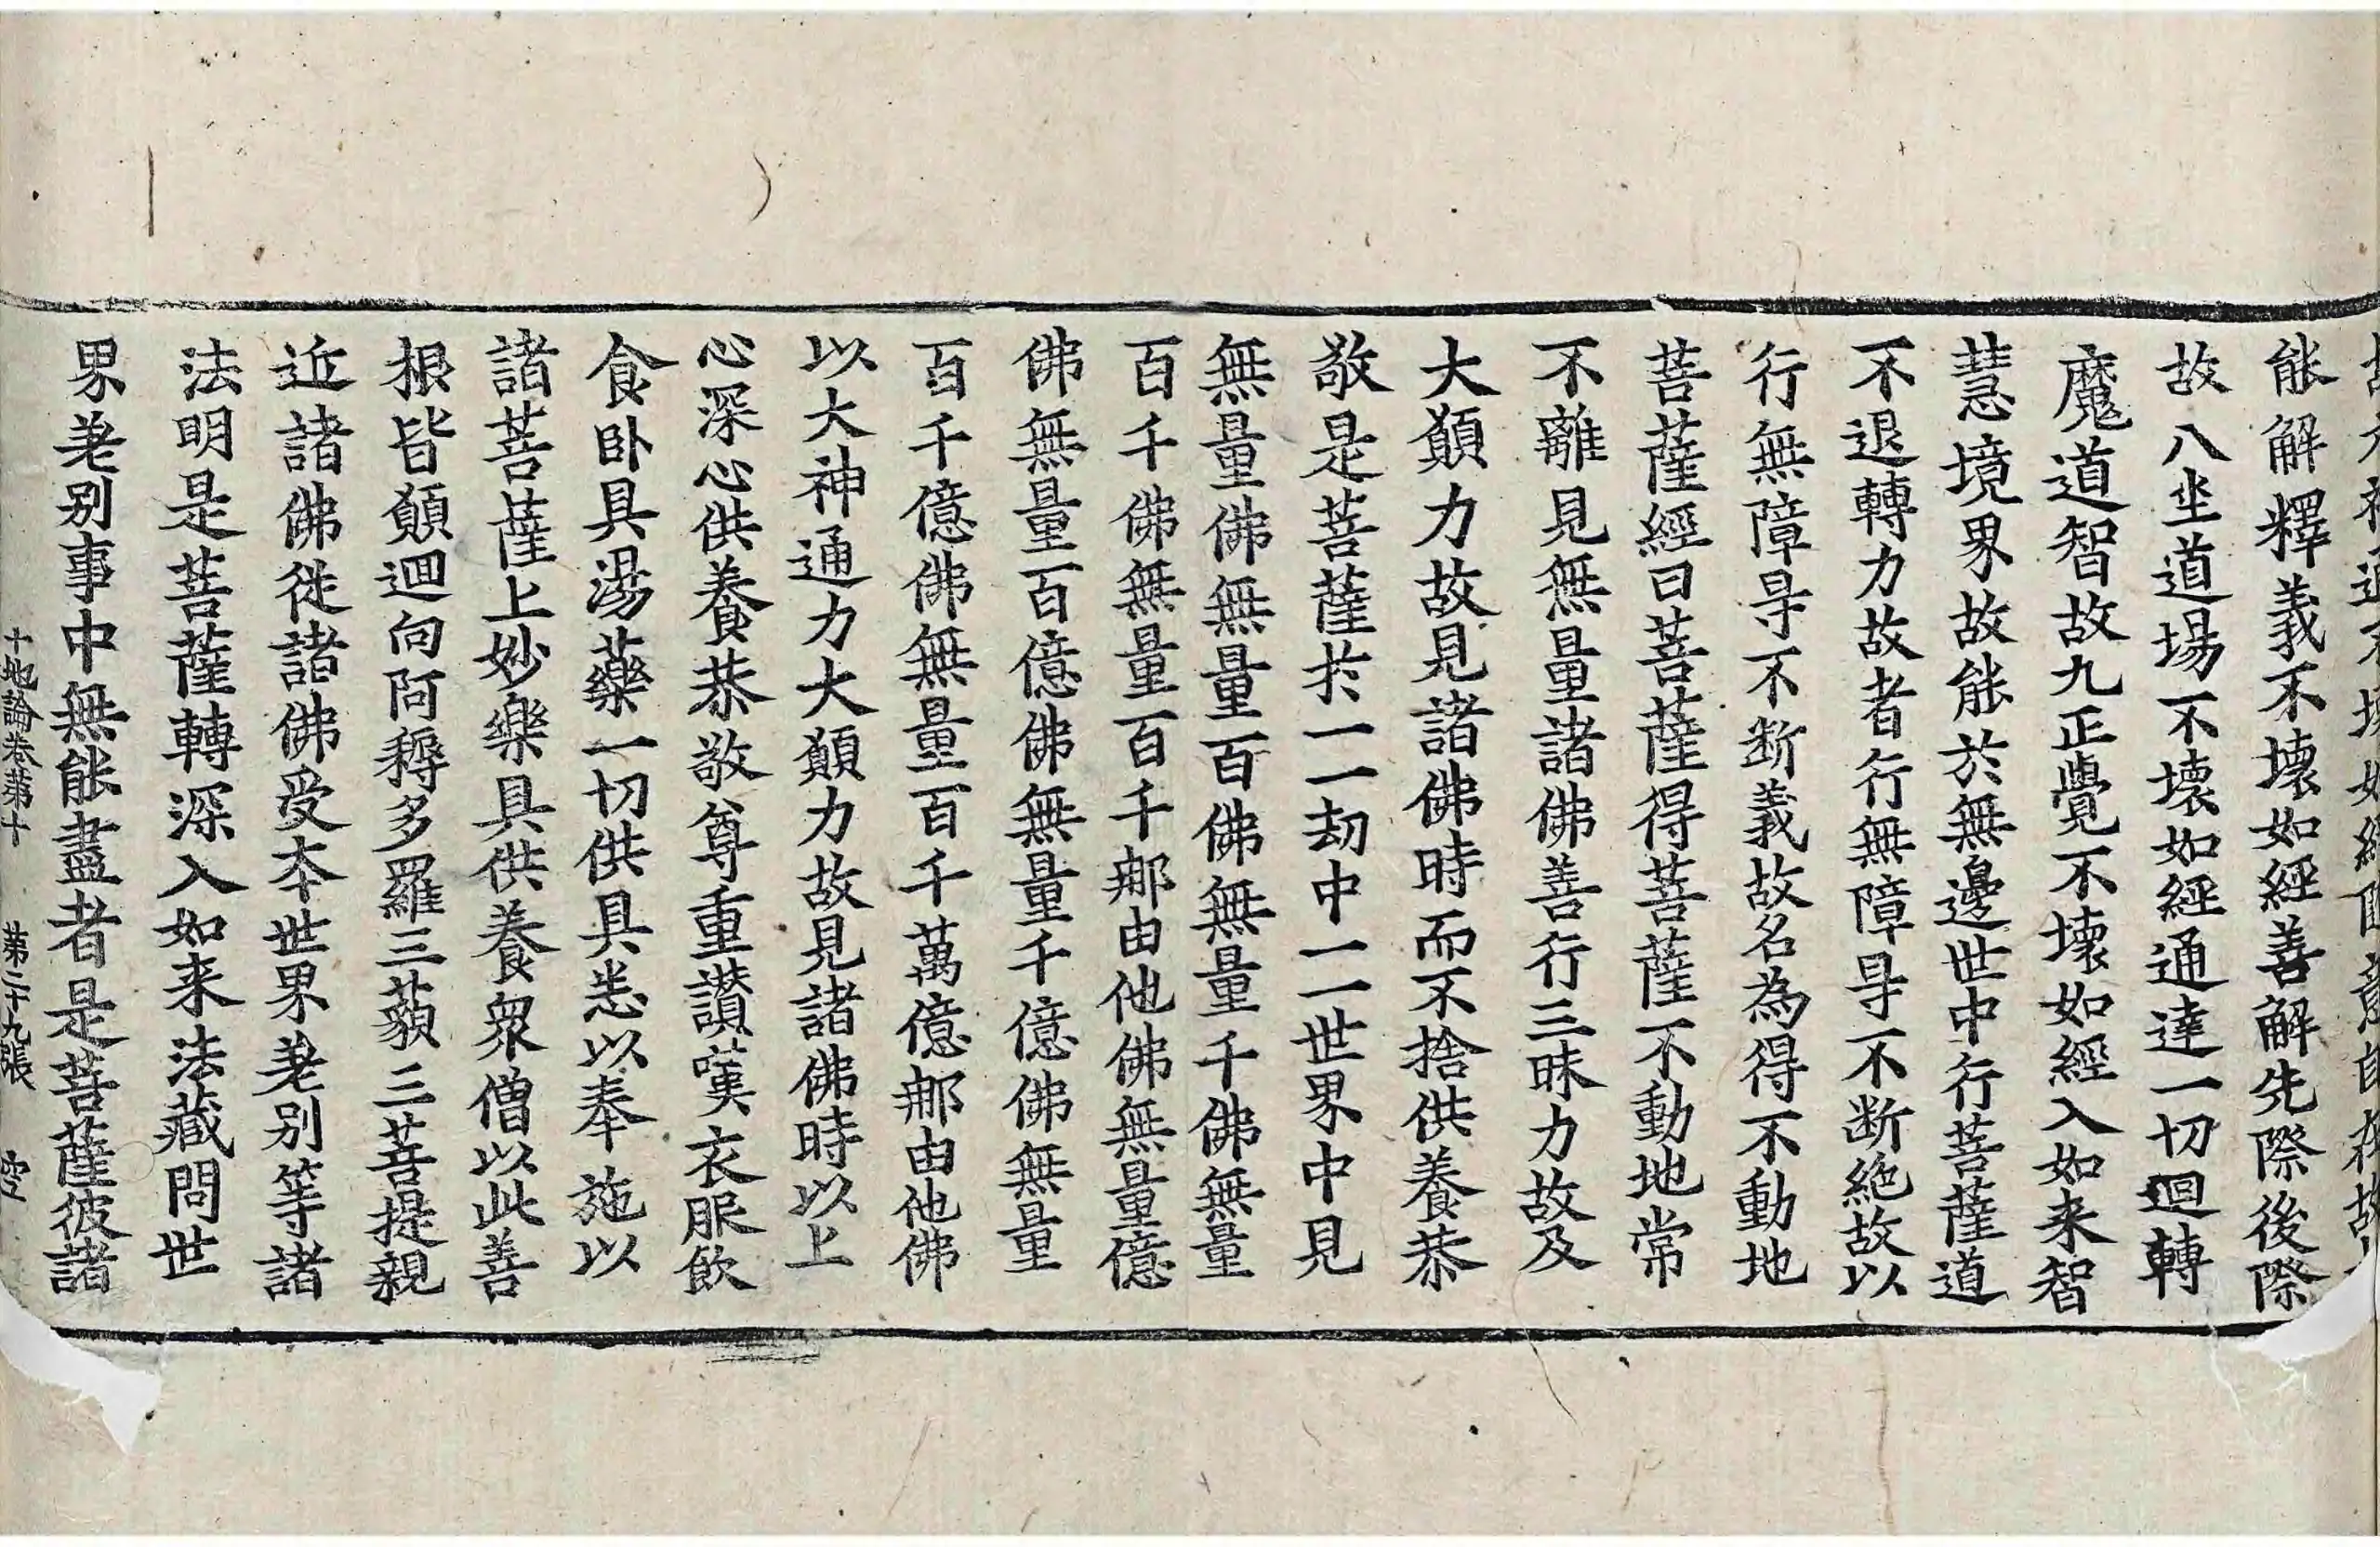 能解釋義不壞如經善解先際後際
故八坐道場不壞如經通達一切迴轉
魔道智故九正覺不壞如經入如来智
慧境界故能於無邊世中行菩薩道
不退轉力故者行無障㝵不断絶故以
行無障㝵不断義故名為得不動地
菩薩經曰菩薩得菩薩不動地常
不離見無量諸佛善行三昧力故及
大願力故見諸佛時而不捨供養恭
敬是菩薩扵一一劫中一一世界中見
無量佛無量百佛無量千佛無量
百千佛無量百千那由他佛無量億
佛無量百億佛無量千億佛無量
百千億佛無量百千萬億那由他佛
以大神通力大願力故見諸佛時以上
心深心供養恭敬尊重讃嘆衣服飲
食卧具湯藥一切供具悉以奉施以
諸菩薩上妙樂具供養衆僧以此善
根皆願迴向阿耨多羅三藐三菩提親
近諸佛從諸佛受本世界差别等諸
法明是菩薩轉深入如来法藏問世
界差别事中無能盡者是菩薩彼諸
十地論卷第十 第二十九張 空